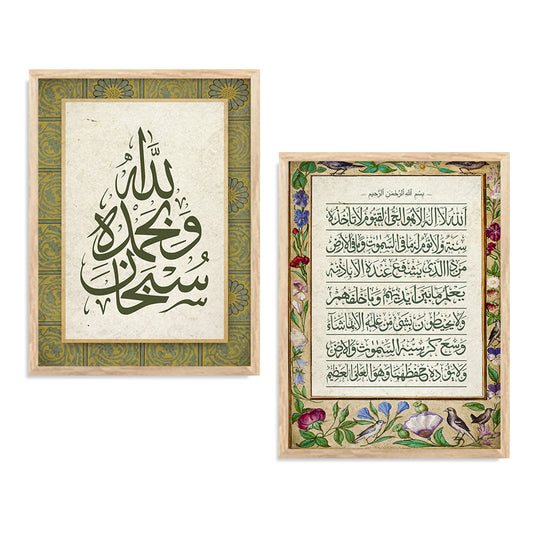 سبحان الله وبحمده
بسم الله الرحمن الرحيم
الله لا اله الا هو الحي القيوم لا تاخذه
سنة ولا نوم له ما في السموت وما في الارض
من ذا الذي يشفع عنده الا باذنه
يعلم ما بين ايديهم وما خلفهم
ولا يحيطون بشئ من علمه الا بما شاء
وسع كرسيه السموت والارض
ولا يؤده حفظهما وهو العلي العظيم